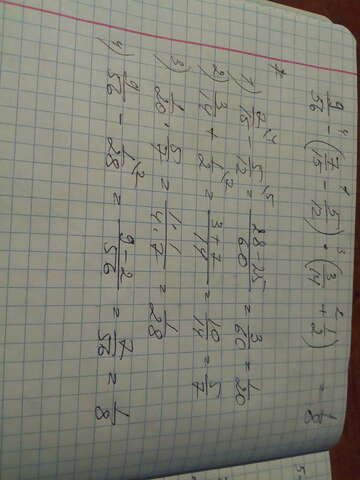 9/56 - (7/15 - 5/12) · (3/14 + 1/2) = 1/8
1) 7/15 - 5/12 = 28-25/60 = 3/60 = 1/20
2) 3/14 + 1/2 = 3+7/14 = 10/14 = 5/7
3) 1/20 · 5/7 = 1·1/4·7 = 1/28
4) 9/56 - 1/28 = 9-2/56 = 7/56 = 1/8